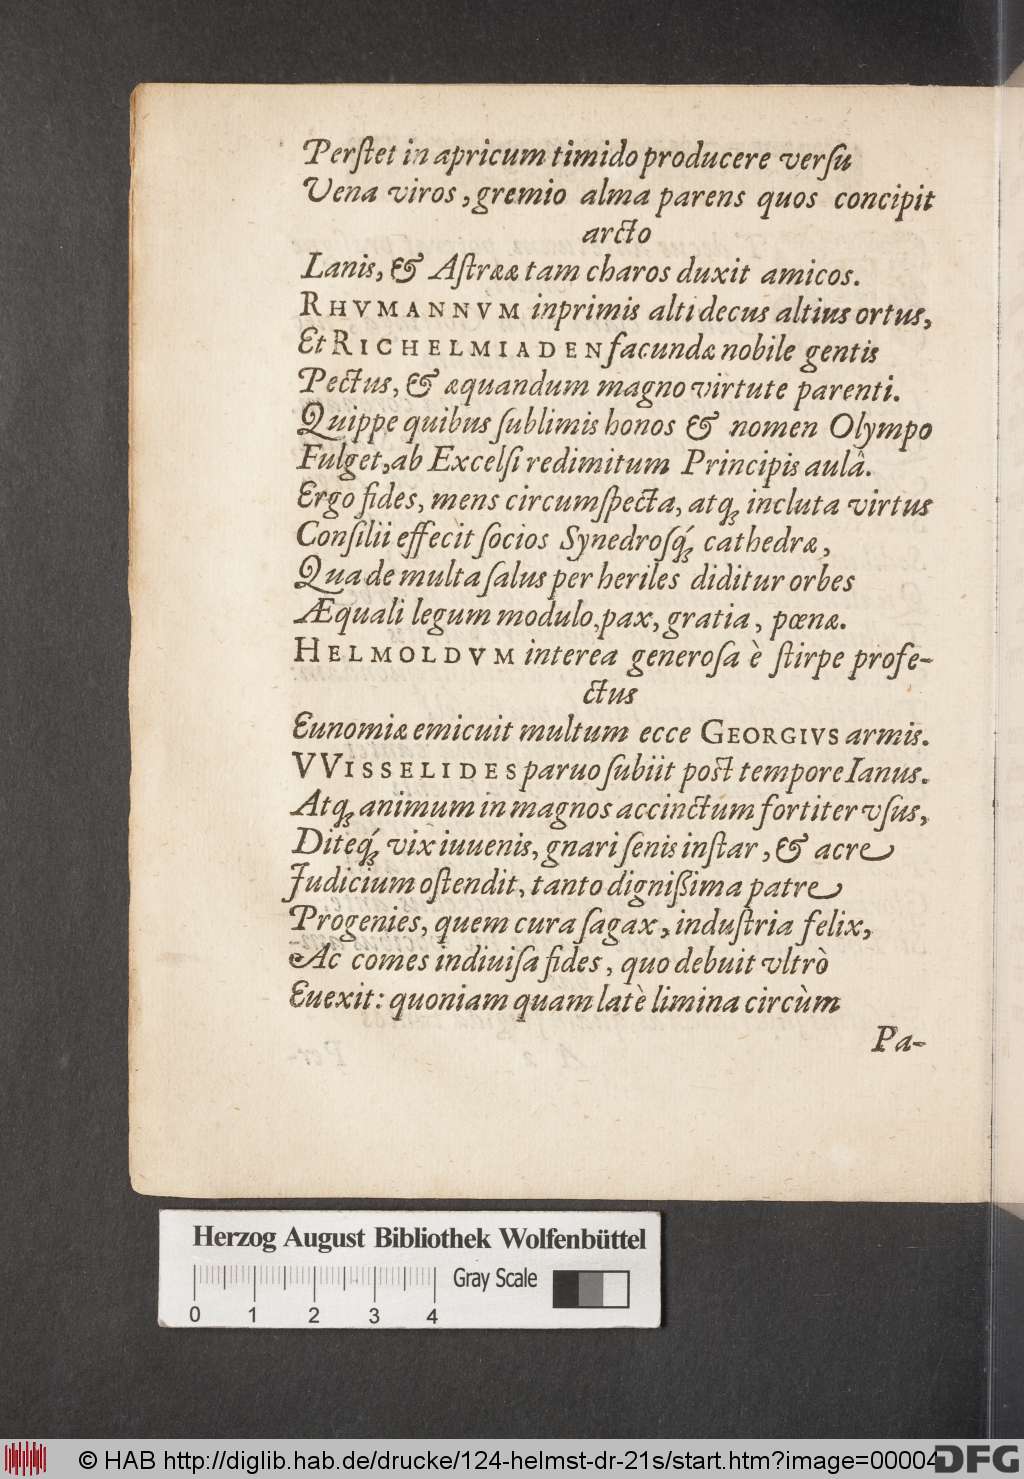 Perſtet in apricum timido producere verſu
Vena viros, gremio alma parens quos concipit
arcto
Ianis, & Aſtrææ tam charos duxit amicos.
RHVMANNVM inprimis alti decus altius ortus,
Et RICHELMIADEN facundæ nobile gentis
Pectus, & æquandum magno virtute parenti.
Quippe quibus ſublimis honos & nomen Olympo
Fulget, ab Excelſi redimitum Principis aulâ.
Ergo fides, mens circumſpecta, atq́; incluta virtus
Conſilii effecit ſocios Synedroſq́; cathedræ,
Qua de multa ſalus per heriles diditur orbes
Æquali legum modulo, pax, gratia, pœnæ.
HELMOLDVM interea generoſa è ſtirpe profe-
ctus
Eunomiæ emicuit multum ecce GEORGIVS armis.
VVISSELIDES paruo ſubiit poſt tempore Ianus.
Atq; animum in magnos accinctum fortiter vſus,
Diteq́; vix iuuenis, gnari ſenis inſtar, & acre
Judicium oſtendit, tanto digniſsima patre
Progenies, quem cura ſagax, induſtria felix,
Ac comes indiuiſa fides, quo debuit vltrò
Euexit: quoniam quam latè limina circùm
Pa-
Herzog August Bibliothek Wolfenbüttel
Gray Scale
0 1 2 3 4
© HAB http://diglib.hab.de/drucke/124-helmst-dr-21s/start.htm?image=00004
DFG